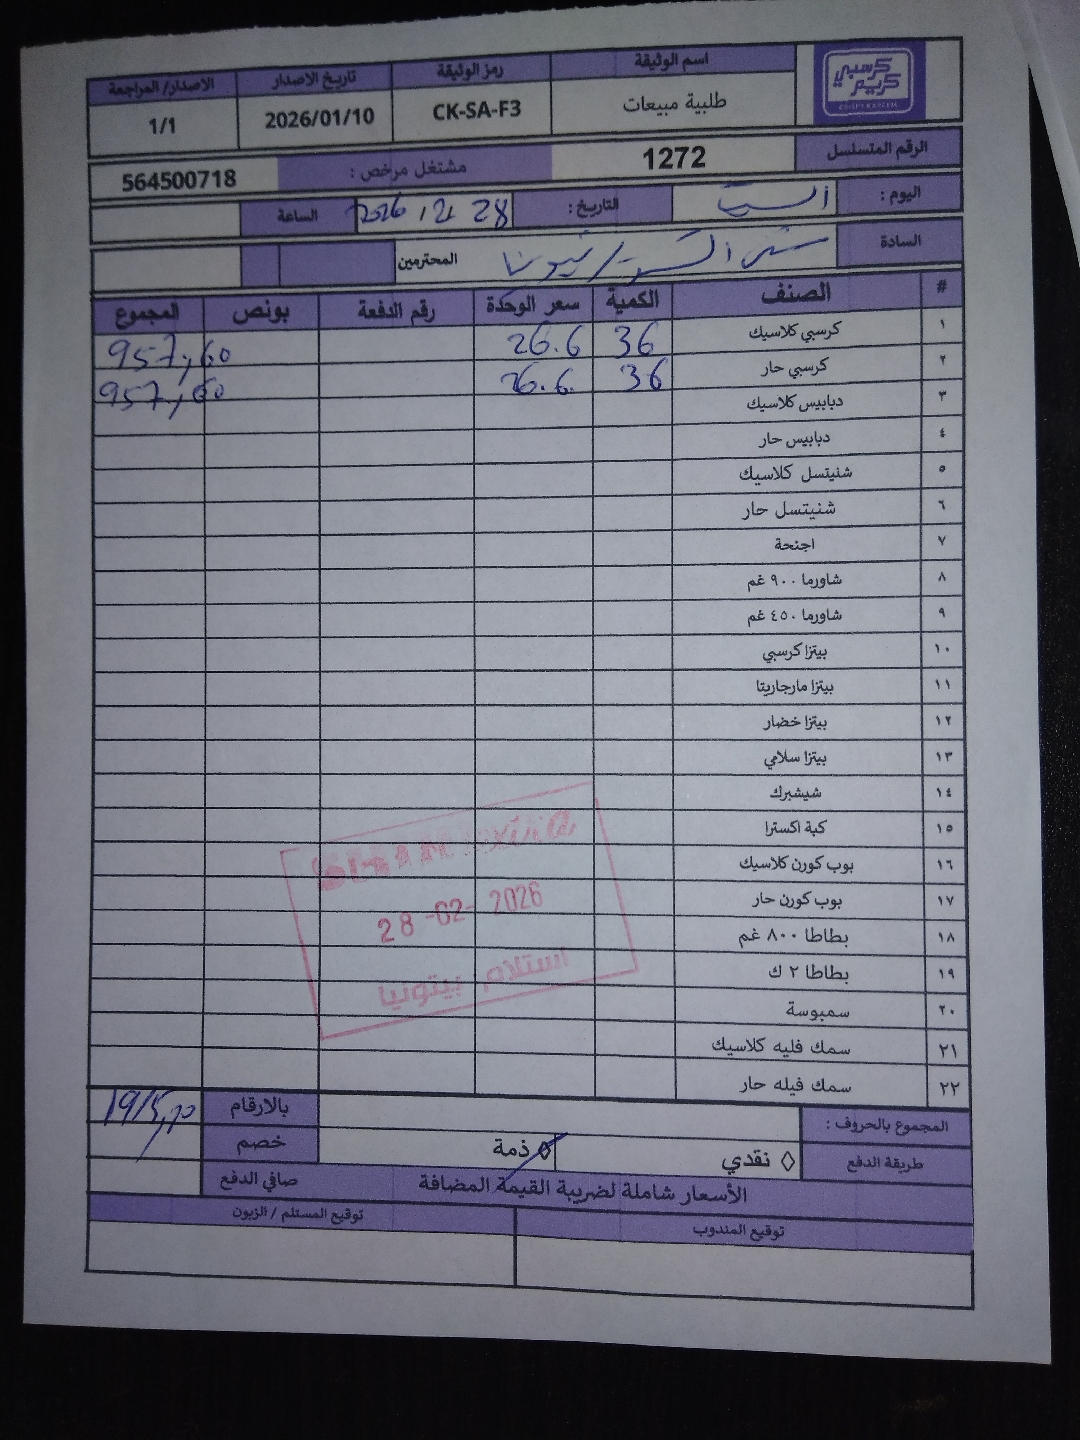 كرسبي كريم
CRISPY KAREEM
اسم الوثيقة رمز الوثيقة تاريخ الاصدار الاصدار/ المراجعة
طلبية مبيعات CK-SA-F3 2026/01/10 1/1
الرقم المتسلسل 1272 مشتغل مرخص : 564500718
اليوم : السبت التاريخ: 28 /2/ 2026 الساعة
السادة المحترمين
# الصنف الكمية سعر الوحدة رقم الدفعة بونص المجموع
١ كرسبي كلاسيك 36 26.6 957,60
٢ كرسبي حار 36 26.6 957,60
٣ دبابيس كلاسيك
٤ دبابيس حار
٥ شنيتسل كلاسيك
٦ شنيتسل حار
٧ اجنحة
٨ شاورما ٩٠٠ غم
٩ شاورما ٤٥٠ غم
١٠ بيتزا كرسبي
١١ بيتزا مارجاريتا
١٢ بيتزا خضار
١٣ بيتزا سلامي
١٤ شيشبرك
١٥ كبة اكسترا
١٦ بوب كورن كلاسيك
١٧ بوب كورن حار
١٨ بطاطا ٨٠٠ غم
١٩ بطاطا ٢ ك
٢٠ سمبوسة
٢١ سمك فليه كلاسيك
٢٢ سمك فيله حار
28 -02- 2026
استلام بيتونيا
المجموع بالحروف : بالارقام
طريقة الدفع ◊ نقدي ◊ ذمة خصم
الأسعار شاملة لضريبة القيمة المضافة صافي الدفع
توقيع المندوب توقيع المستلم / الزبون